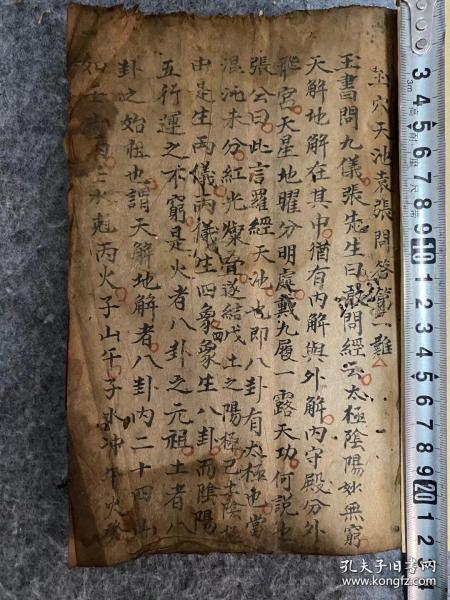 穴天池袁張問答第一難
玉書問九儀張先生曰敢問經云太極陰陽妙無窮
天解地解在其中猶有内解與外解内守殿分外
宮天星地曜分明處戴九履一露天功何説也
張公曰此言羅經天池也即八卦有太極也當
混沌未分紅光遂結戊土之陽極己土陰
中是生兩儀兩儀生四象四象生八卦而陰陽
五行運之不窮是火者八卦之元祖土者八
卦之始胚也謂天解地解者八卦内二十四山
如壬水尅丙火子山午子水冲午火癸
孔夫子旧书网
www.kongfz.com